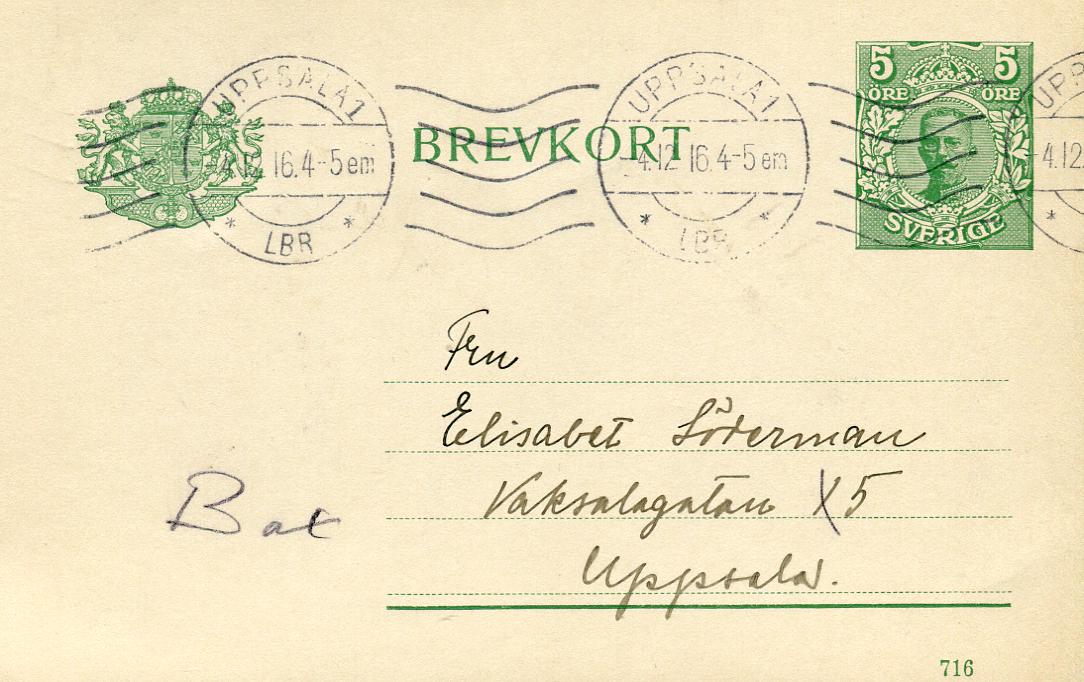 UPPSALA 1
-4.12 16.4-5 em
* LBR *
BREVKORT
UPPSALA 1
-4.12 16.4-5 em
* LBR *
5 5
ÖRE ÖRE
SVERIGE
UPP
-4.12
*
Fru
Elisabet Söderman
Vaksalagatan 5
Uppsala.
716